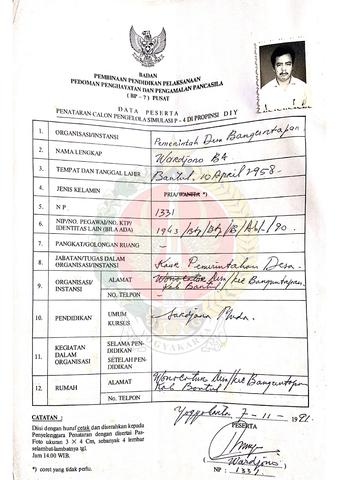 BADAN
PEMBINAAN PENDIDIKAN PELAKSANAAN
PEDOMAN PENGHAYATAN DAN PENGAMALAN PANCASILA
( BP - 7 ) PUSAT
DATA PESERTA
PENATARAN CALON PENGELOLA SIMULASI P - 4 DI PROPINSI DIY
1. ORGANISASI/INSTANSI Pemerintah Desa Banguntapan.
2. NAMA LENGKAP Wardjono BA
3. TEMPAT DAN TANGGAL LAHIR Bantul, 10 April 1958.
4. JENIS KELAMIN PRIA/WANITA *)
5. N P 1331
6. NIP/NO. PEGAWAI/NO. KTP/
IDENTITAS LAIN (BILA ADA) 1943 /Btp/ /B/ /90.
7. PANGKAT/GOLONGAN RUANG –
8. JABATAN/TUGAS DALAM
ORGANISASI/INSTANSI Kaur Pemerintahan Desa.
9. ORGANISASI/
INSTANSI ALAMAT Wonocatur Desa/Kec Banguntapan.
Kab Bantul
NO. TELPON –
10. PENDIDIKAN UMUM Sardjana Muda.
KURSUS
11. KEGIATAN
DALAM
ORGANISASI SELAMA PEN-
DIDIKAN
SETELAH PEN-
DIDIKAN
12. RUMAH ALAMAT Wonocatur Desa/Kec Banguntapan
Kab Bantul
NO. TELPON
Yogyakarta 7-11-1991.
CATATAN :
Diisi dengan huruf cetak dan diserahkan kepada
Penyelenggara Penataran dengan disertai Pas-
Foto ukuran 3 × 4 Cm, sebanyak 4 lembar
selambat-lambatnya tgl.
Jam 14.00 WIB.
*) coret yang tidak perlu.
PESERTA
(Wardjono)
NP : 1331.